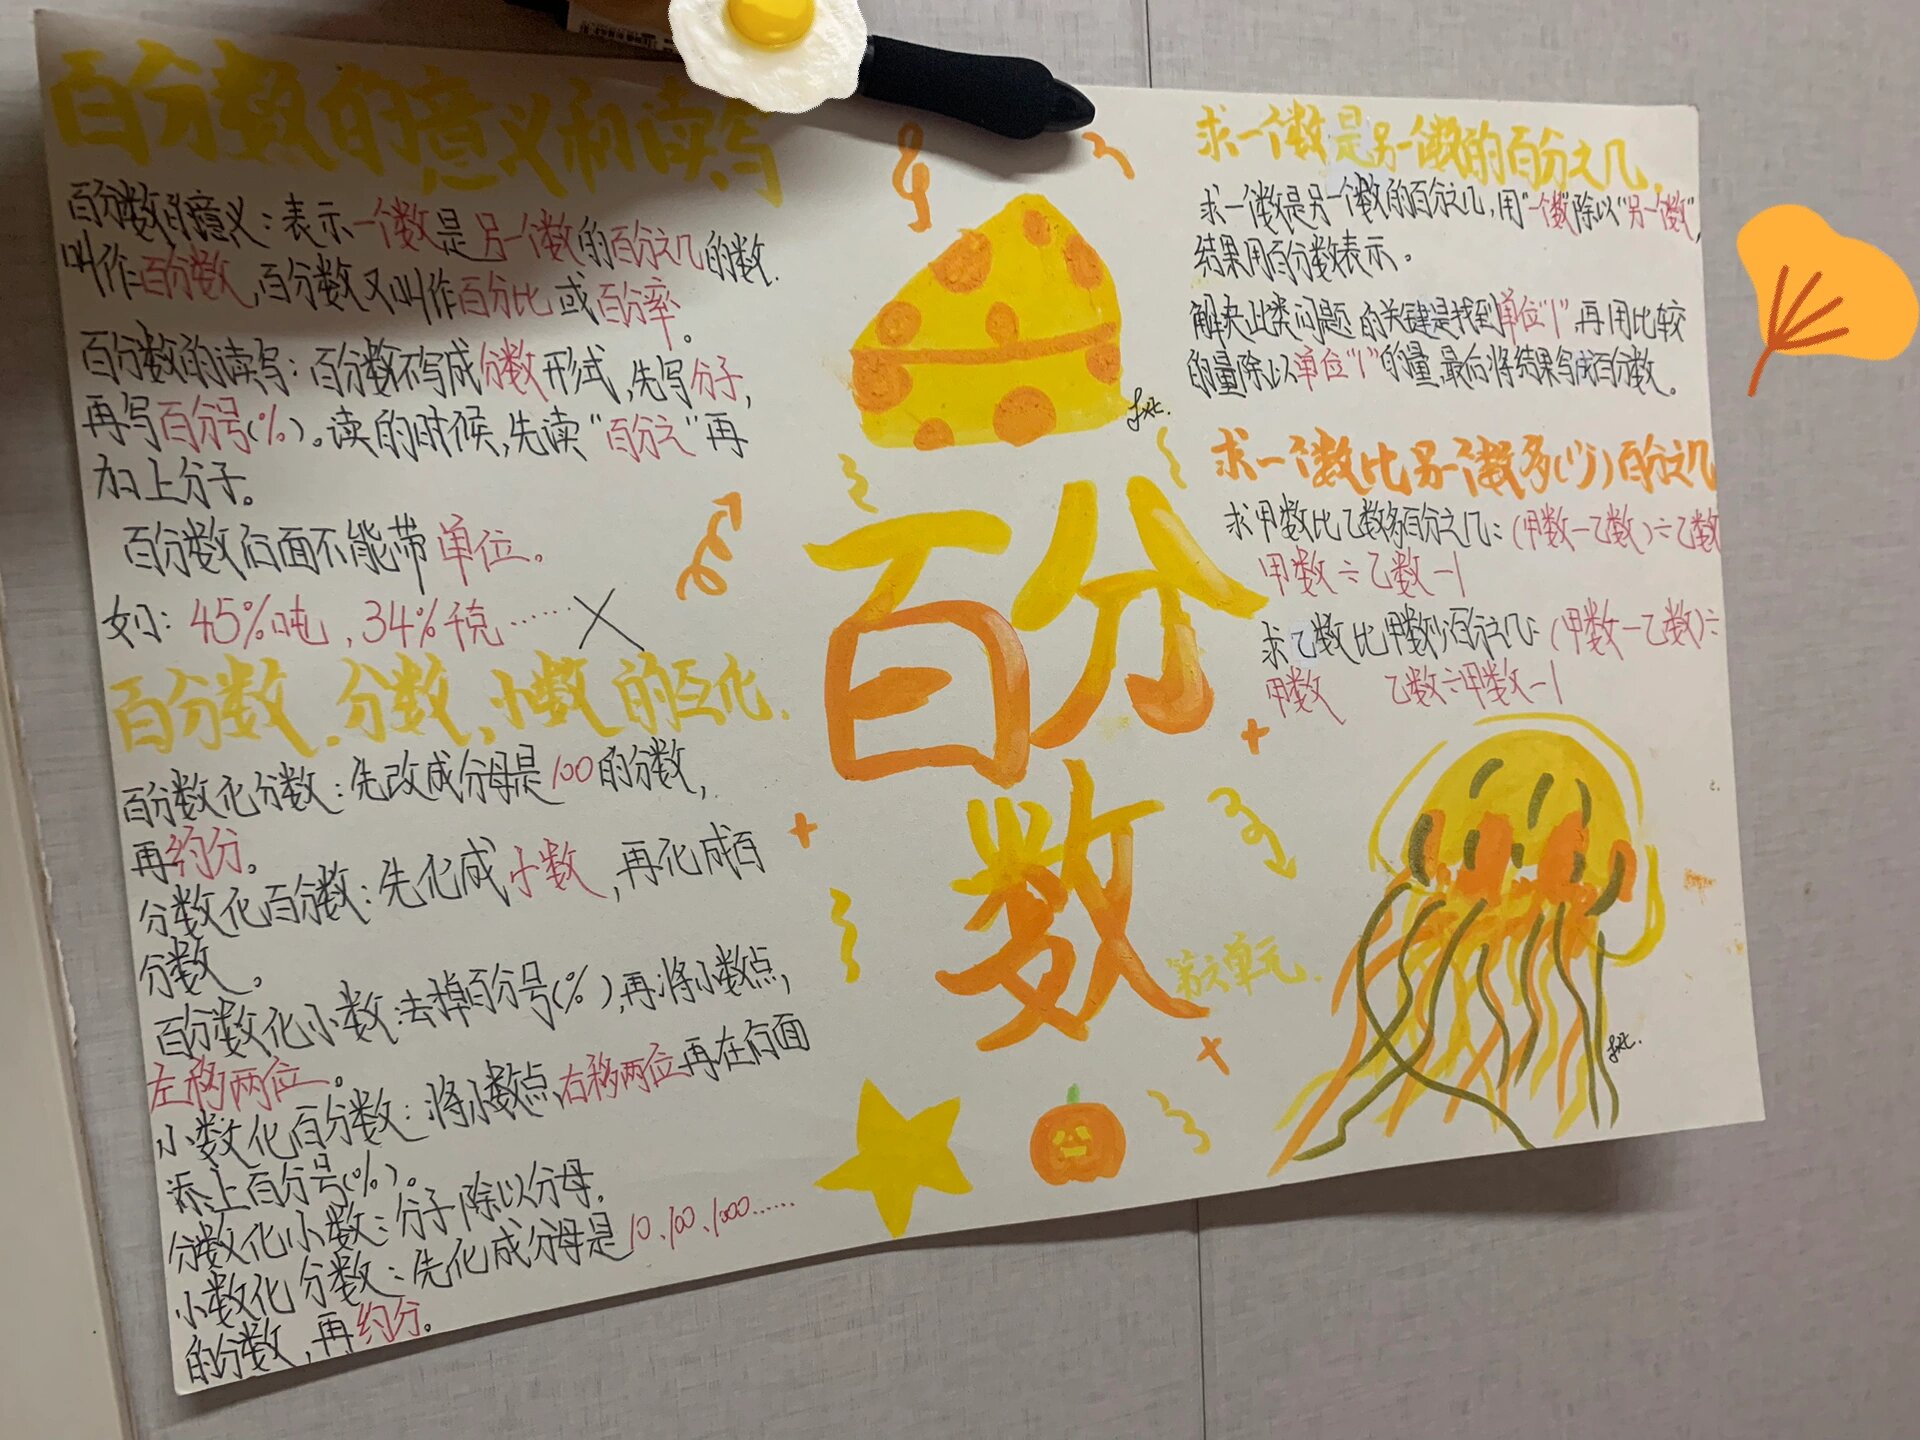 百分数的意义和读写
百分数的意义：表示一个数是另一个数的百分之几的数.
叫作百分数，百分数又叫作百分比或百分率。
百分数的读写：百分数不写成分数形式，先写分子，
再写百分号(%)。读的时候，先读“百分之”再
加上分子。
百分数后面不能带单位。
如：45%吨，34%千克……×
百分数、分数、小数的互化.
百分数化分数：先改成分母是100的分数，
再约分。
分数化百分数：先化成小数，再化成百
分数。
百分数化小数：去掉百分号(%)，再将小数点，
左移两位。
小数化百分数：将小数点右移两位再在后面
添上百分号(%)。
分数化小数：分子除以分母.
小数化分数：先化成分母是10、100、1000……
的分数，再约分。
百分
数
第六单元.
求一个数是另一个数的百分之几
求一个数是另一个数的百分之几，用“一个数”除以“另一个数”，
结果用百分数表示。
解决此类问题的关键是找到单位“1”，再用比较
的量除以单位“1”的量，最后将结果写成百分数。
求一个数比另一个数多(少)百分之几
求甲数比乙数多百分之几：(甲数-乙数)÷乙数
甲数÷乙数-1
求乙数比甲数少百分之几：(甲数-乙数)÷
甲数 乙数÷甲数-1